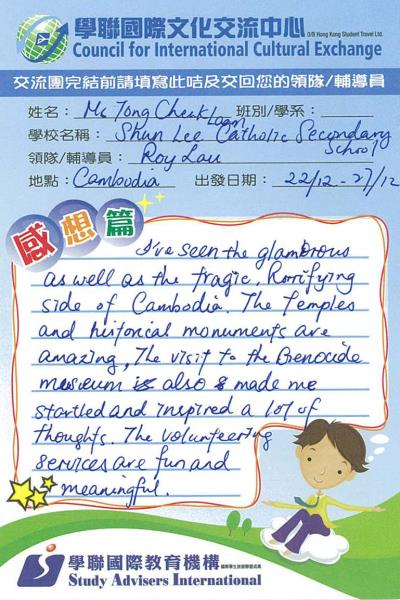 學聯國際文化交流中心 O/B Hong Kong Student Travel Ltd.
Council for International Cultural Exchange
交流團完結前請填寫此咭及交回您的領隊/輔導員
姓名：Ms Tong Cheuk Laam 班別/學系：
學校名稱：Shun Lee Catholic Secondary School
領隊/輔導員：Roy Lau
地點：Cambodia 出發日期：22/12 - 27/12
感想篇
I've seen the glamorous
as well as the tragic, horrifying
side of Cambodia. The temples
and historical monuments are
amazing, The visit to the Genocide
museum is also made me
startled and inspired a lot of
thoughts. The volunteering
services are fun and
meaningful.
學聯國際教育機構
Study Advisers International